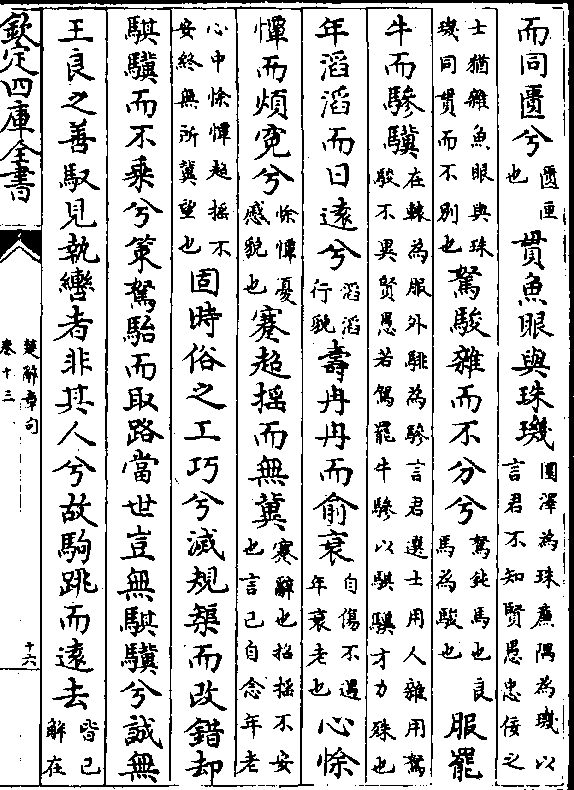 而同匱兮匱匣也貫魚眼與珠璣圜澤為珠廉隅為璣以言君不知賢愚忠佞之
士猶雜魚眼與珠璣同貫而不別也駑駿雜而不分兮駑鈍馬也良馬為駿也服罷
牛而驂驥在轅為服外騑為驂言君選士用人雜用駑駿不異賢愚若駕罷牛驂以騏驥才力殊也
年滔滔而日遠兮滔滔行貌壽冉冉而俞衰自傷不遇年衰老也心悇
憛而煩寃兮悇憛憂慼貌也蹇超摇而無冀蹇辭也招摇不安也言己自念年老
心中悇憛超摇不安終無所冀望也固時俗之工巧兮滅規榘而改錯却
騏驥而不乗兮策駑駘而取路當世豈無騏驥兮誠無
王良之善馭見執轡者非其人兮故駒跳而遠去皆已解在
欽定四庫全書
楚辭章句
卷十三
十六